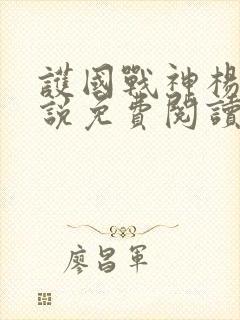 護國戰神楊
說免費閱讀
廖昌軍